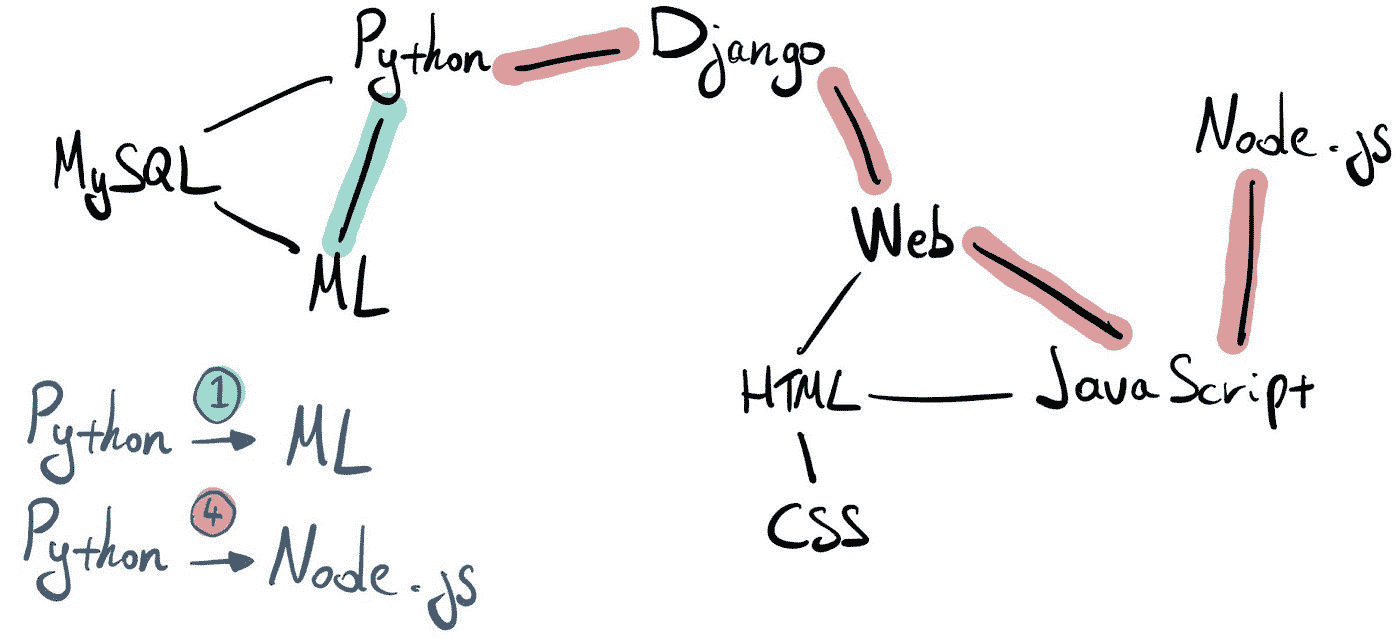 Python
Django
Node.js
MySQL
Web
ML
HTML
JavaScript
CSS
Python 1 ML
Python 4 Node.js